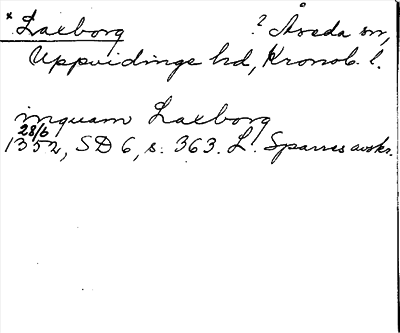 * Laxborg ? Åseda sn,
Uppvidinge hd, Kronob. l.
inquam Laxborg
28/6
1352, SD 6, s. 363. L. Sparres avskr.